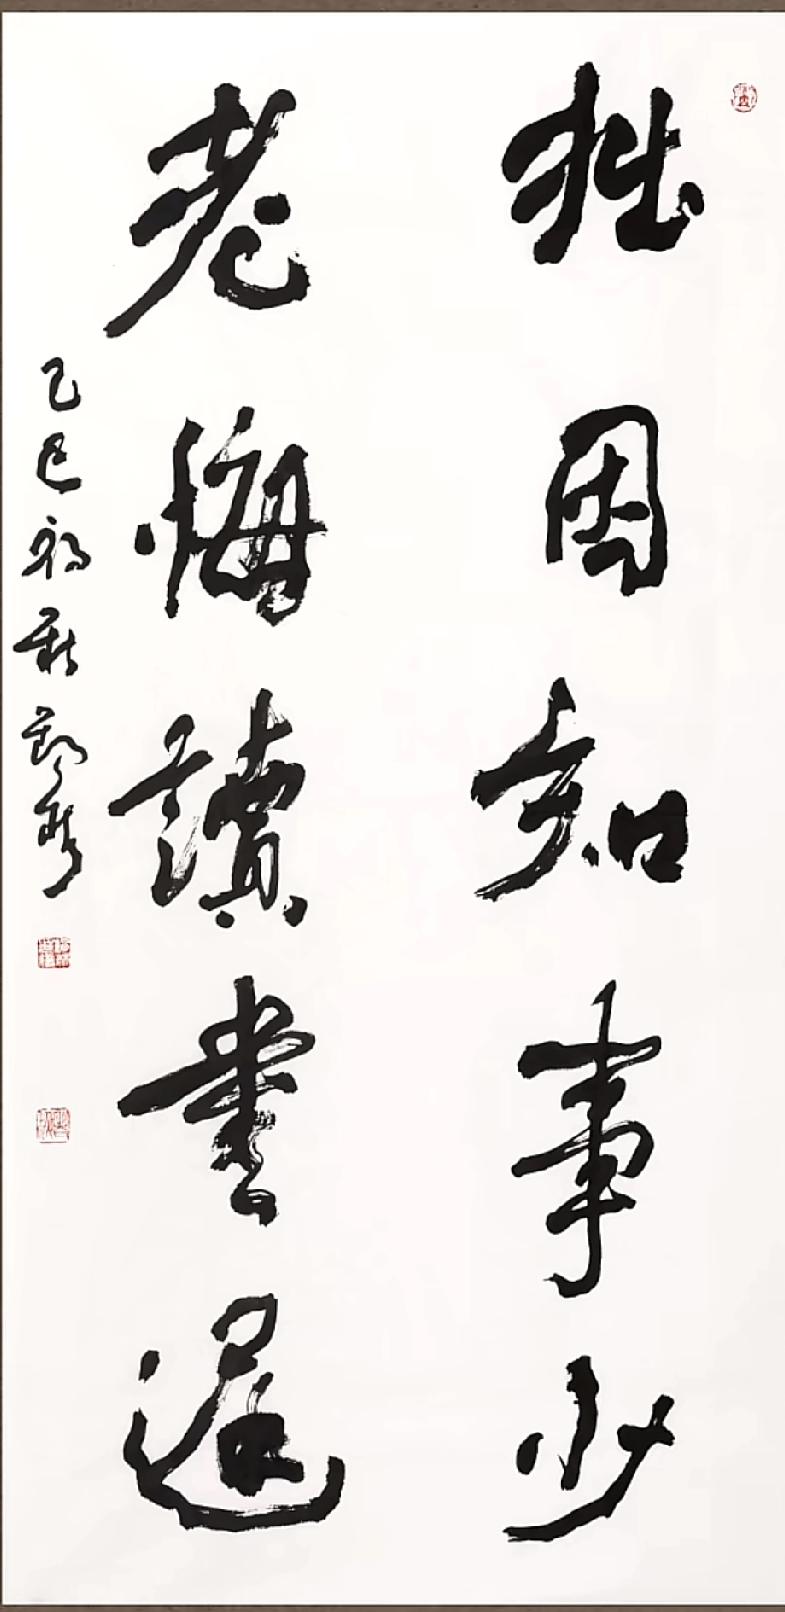 拙因知事少
老悔讀書遲
乙巳初秋